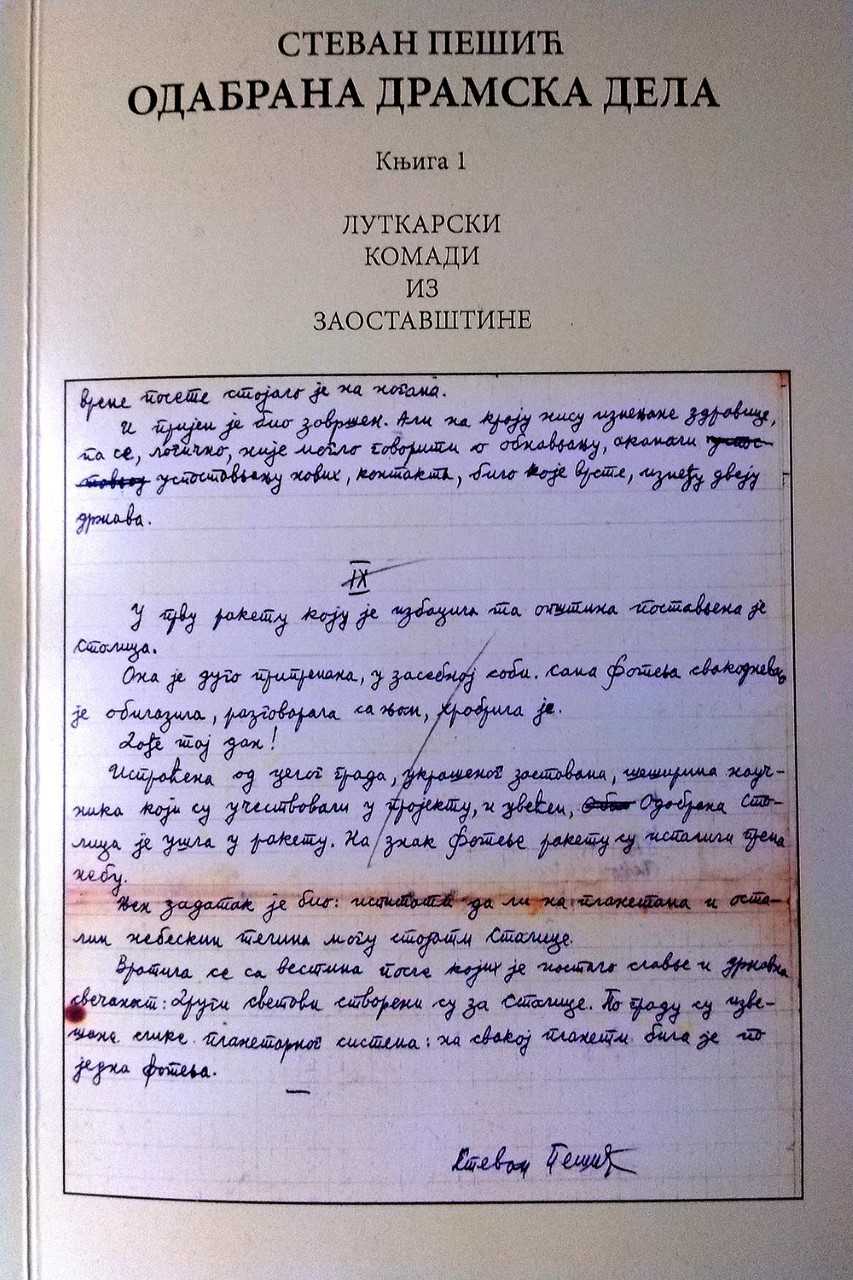 СТЕВАН ПЕШИЋ
ОДАБРАНА ДРАМСКА ДЕЛА
Књига 1
ЛУТКАРСКИ
КОМАДИ
ИЗ
ЗАОСТАВШТИНЕ
време посете стојало је на ногама.
И пријем је био завршен. Али на крају нису измењане здравице,
па се, логично, није могло говорити о обнављању, акамоли
успостављању нових, контакта, било које врсте, између двеју
држава.
IX
У прву ракету коју је избацила та општина постављена је
Столица.
Она је дуго припремана, у засебној соби. Сама Фотеља свакодневно
је обилазила, разговарала са њом, храбрила је.
Дође тај дан!
Испраћена од целог града, украшеног заставама, шеширима науч-
ника који су учествовали у пројекту, и цвећем, Одабрана Сто-
лица је ушла у ракету. На знак Фотеље ракету су испалили према
небу.
Њен задатак је био: испитати да ли на планетама и оста-
лим небеским телима могу стојати Столице.
Вратила се са вестима после којих је настало славље и државна
свечаност: Други светови створени су за Столице. По граду су изве-
шане слике планетарног система: на свакој планети била је по
једна фотеља.
Стеван Пешић